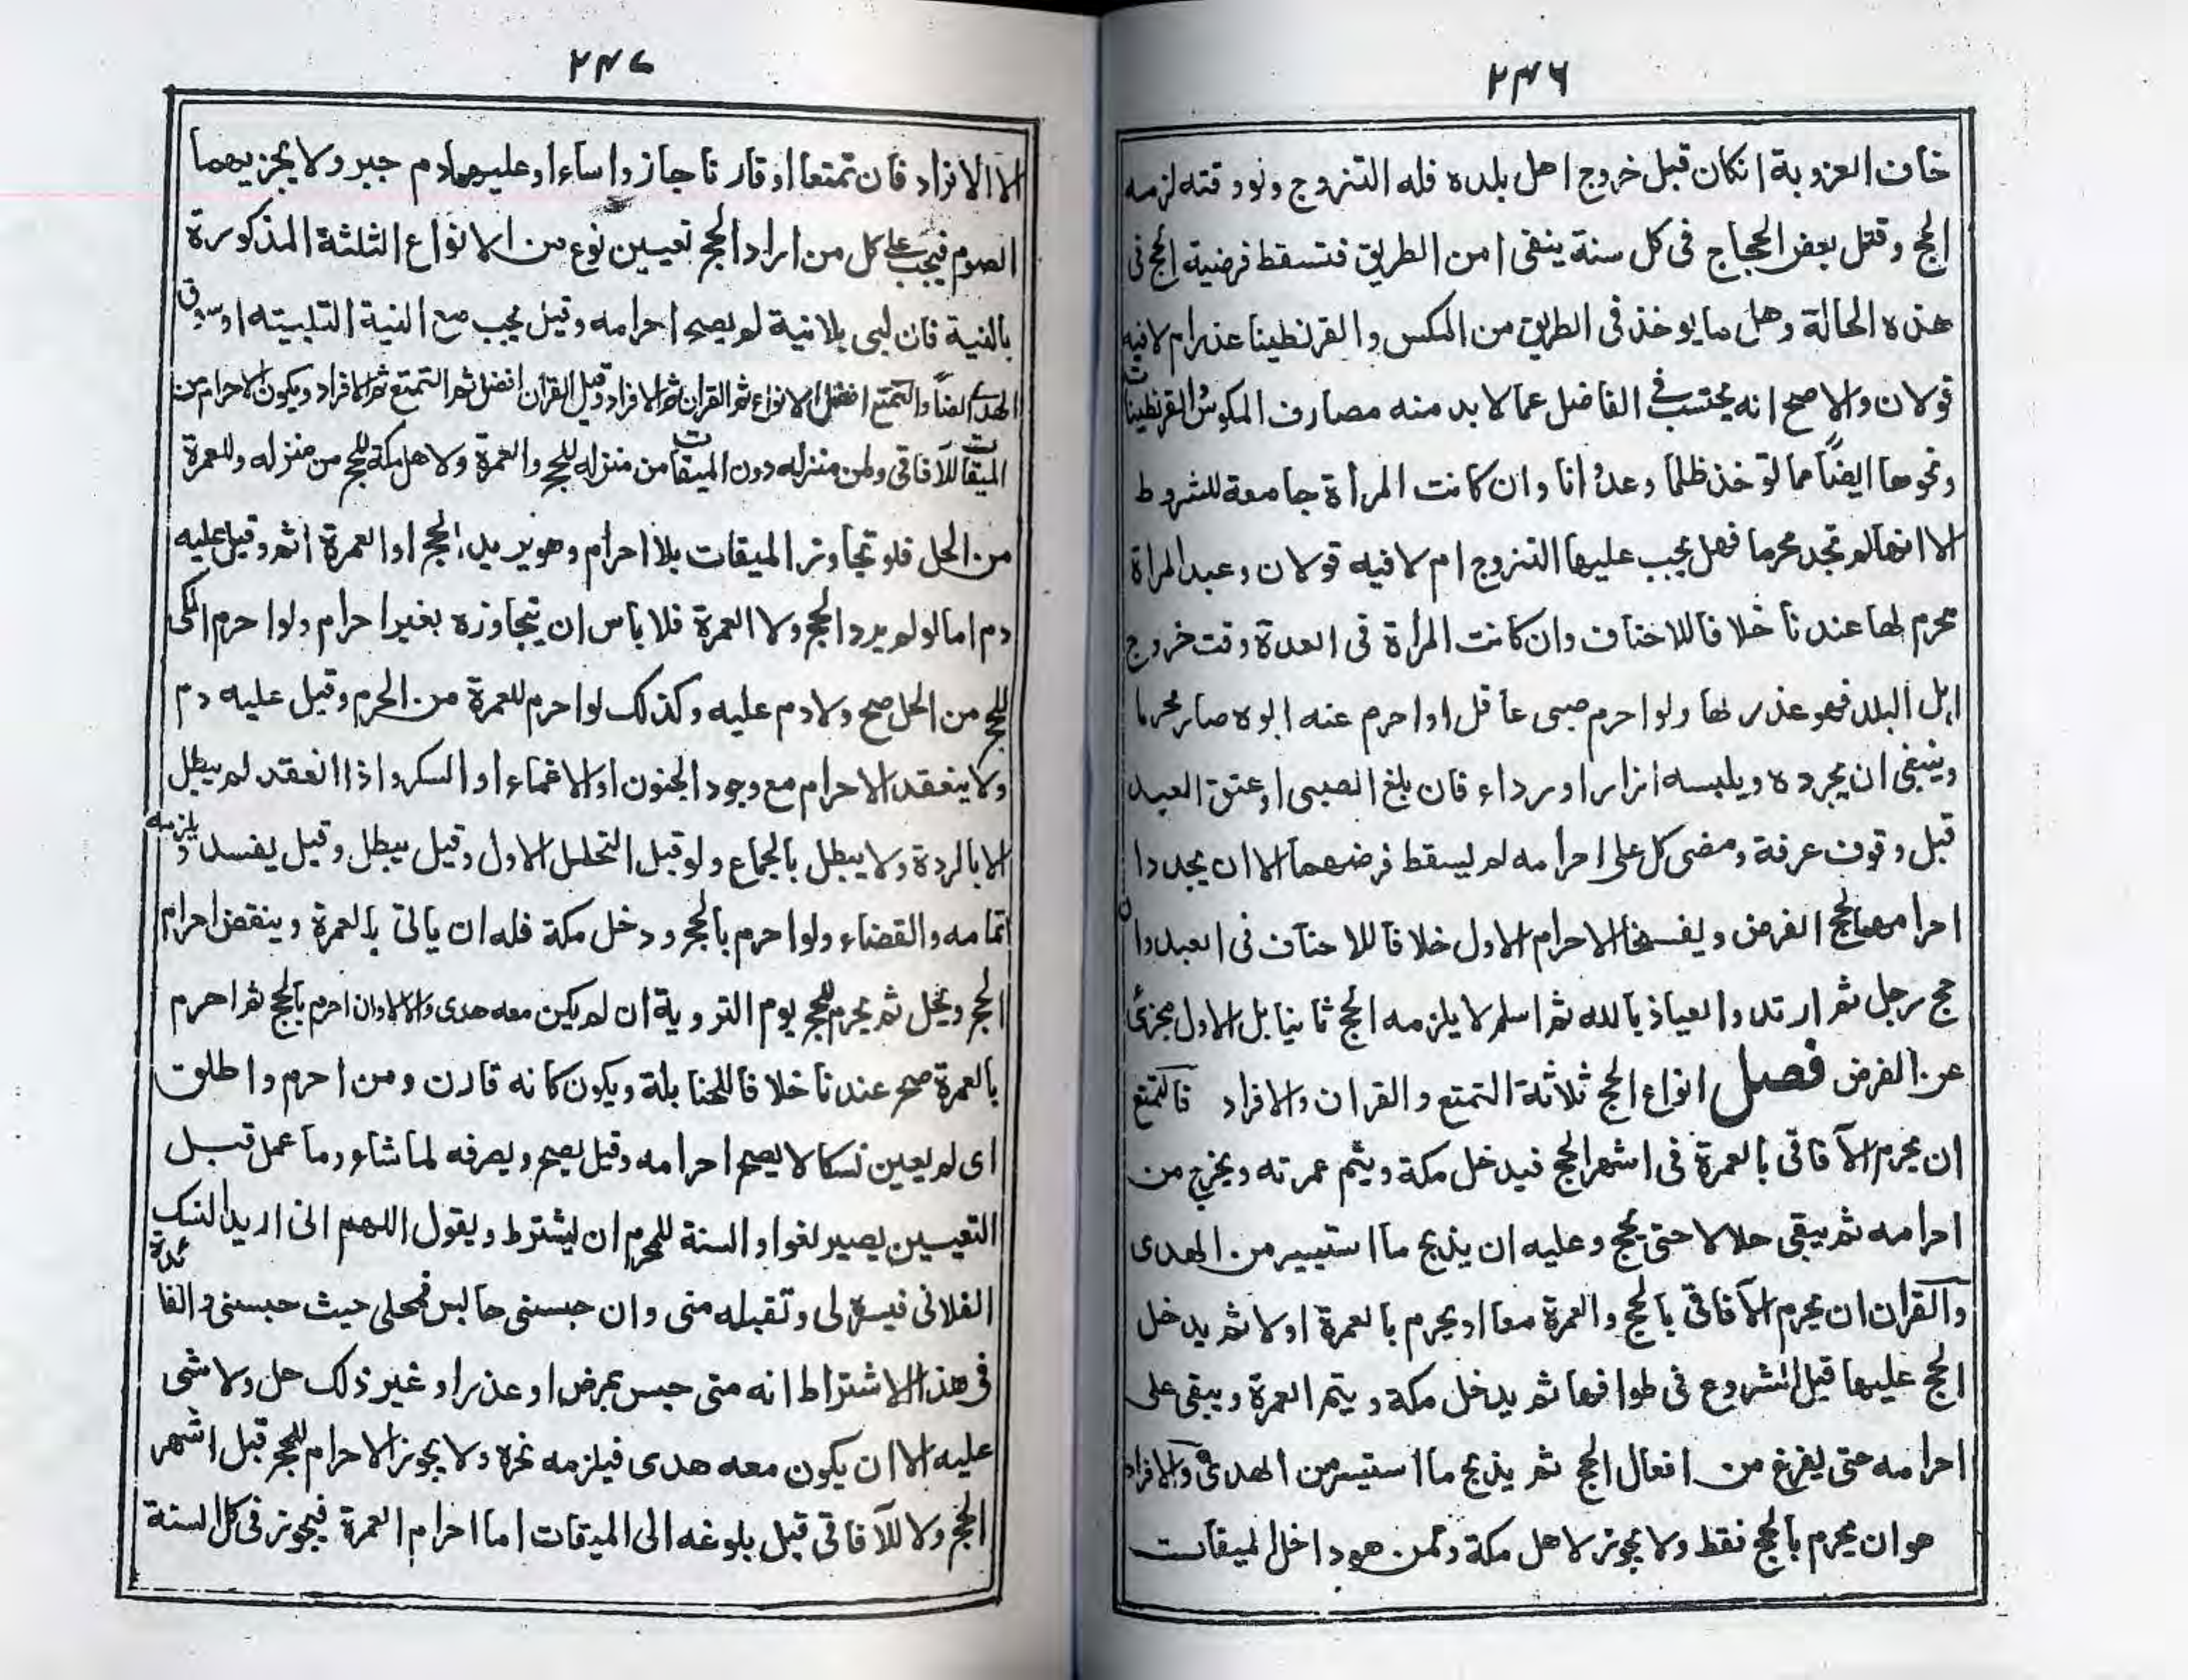 ٢٣٦
خاف العزوبة انكان قبل خروج اهل بلده فله التنزوج ولو وقته لزمه
الحج وقتل بعض الحجاج فى كل سنة ينفى امن الطريق فتسقط فرضية الحج فى
هذه الحالة وهل ما يوخذ فى الطريق من المكس والقرنطينا عذر ام لا فيه
قولان والاصح انه يحتسب فى الفاضل عما لا بد منه مصارف المكوس والقرنطينات
ونحوها ايضًا مما توخذ ظلما وعدوانا وان كانت المرأة جامعة للشروط
الا انها لم تجد محرما فهل يجب عليها التنزوج ام لا فيه قولان وعبد المراة
محرم لها عندنا خلافا للاحناف وان كانت المرأة فى العدة وقت خروج
اهل البلد فهو عذر لها ولو احرم صبى عاقل او احرم عنه ابوه صار محرما
وينبغى ان يجرده ويلبسه ازارا ورداء فان بلغ الصبى او عتق العبد
قبل وقوف عرفة ومضى كل على احرامه لم يسقط فرضهما الا ان يجددا
احرامهما لحج الفرض ويفسخا الاحرام الاول خلافا للاحناف فى العبد وان
حج رجل ثم ارتد والعياذ بالله ثم اسلم لا يلزمه الحج ثانيا بل الاول مجزئ
عن الفرض فصل انواع الحج ثلاثة التمتع والقران والافراد فالتمتع
ان يحرم الآفاقى بالعمرة فى اشهر الحج فيدخل مكة ويتم عمرته ويخرج من
احرامه ثم يبقى حلالا حتى يحج وعليه ان يذبح ما استيسر من الهدى
والقران ان يحرم الآفاقى بالحج والعمرة معا او يحرم بالعمرة اولا ثم يدخل
الحج عليها قبل الشروع فى طوافها ثم يدخل مكة ويتم العمرة ويبقى على
احرامه حتى يفرغ من افعال الحج ثم يذبح ما استيسر من الهدى والافراد
هو ان يحرم بالحج فقط ولا يجوز لاهل مكة ولمن هو داخل الميقات
٢٣٧
الا الافراد فان تمتعا او قارنا جاز واساءا وعليهما دم جبر ولا يجزيهما
الصوم فيجب على كل من اراد الحج تعيين نوع من الانواع الثلثة المذكورة
بالنية فان لبى بلا نية لم يصح احرامه وقيل يجب مع النية التلبيته او سوق
الهدى ايضًا والتمتع افضل الانواع ثم القران ثم الافراد وقيل القران افضل ثم التمتع ثم الافراد ويكون الاحرام من
الميقات للآفاقى ولمن منزله دون الميقات من منزله للحج والعمرة ولاهل مكة للحج من منزله وللعمرة
من الحل فلو تجاوز الميقات بلا احرام وهو يريد الحج او العمرة اثم وقيل عليه
دم اما لو لم يرد الحج ولا العمرة فلا باس ان يتجاوزه بغير احرام ولو احرم المكى
للحج من الحل صح ولا دم عليه وكذلك لو احرم للعمرة من الحرم وقيل عليه دم
ولا ينعقد الاحرام مع وجود الجنون او الاغماء او السكر واذا انعقد لم يبطل
الا بالردة ولا يبطل بالجماع ولو قبل التحلل الاول وقيل يبطل وقيل يفسد ويلزمه
اتمامه والقضاء ولو احرم بالحج ودخل مكة فله ان ياتى بالعمرة وينقض احرام
الحج ويحل ثم يحرم للحج يوم التروية ان لم يكن معه هدى والا لا وان احرم بالحج ثم احرم
بالعمرة صح عندنا خلافا للحنابلة ويكون كانه قارن ومن احرم واطلق
اى لم يعين نسكا لا يصح احرامه وقيل يصح ويصرفه لما شاء وما عمل قبل
التعيين يصير لغوا والسنة للمحرم ان يشترط ويقول اللهم انى اريد النسك
الفلانى فيسره لى وتقبله منى وان حبسنى حابس فمحلى حيث حبسنى والفائدة
فى هذا الاشتراط انه متى حبس بمرض او عذر او غير ذلك حل ولا شى
عليه الا ان يكون معه هدى فيلزمه نحره ولا يجوز الاحرام للحج قبل اشهر
الحج ولا للآفاقى قبل بلوغه الى الميقات اما احرام العمرة فيجوز فى كل السنة